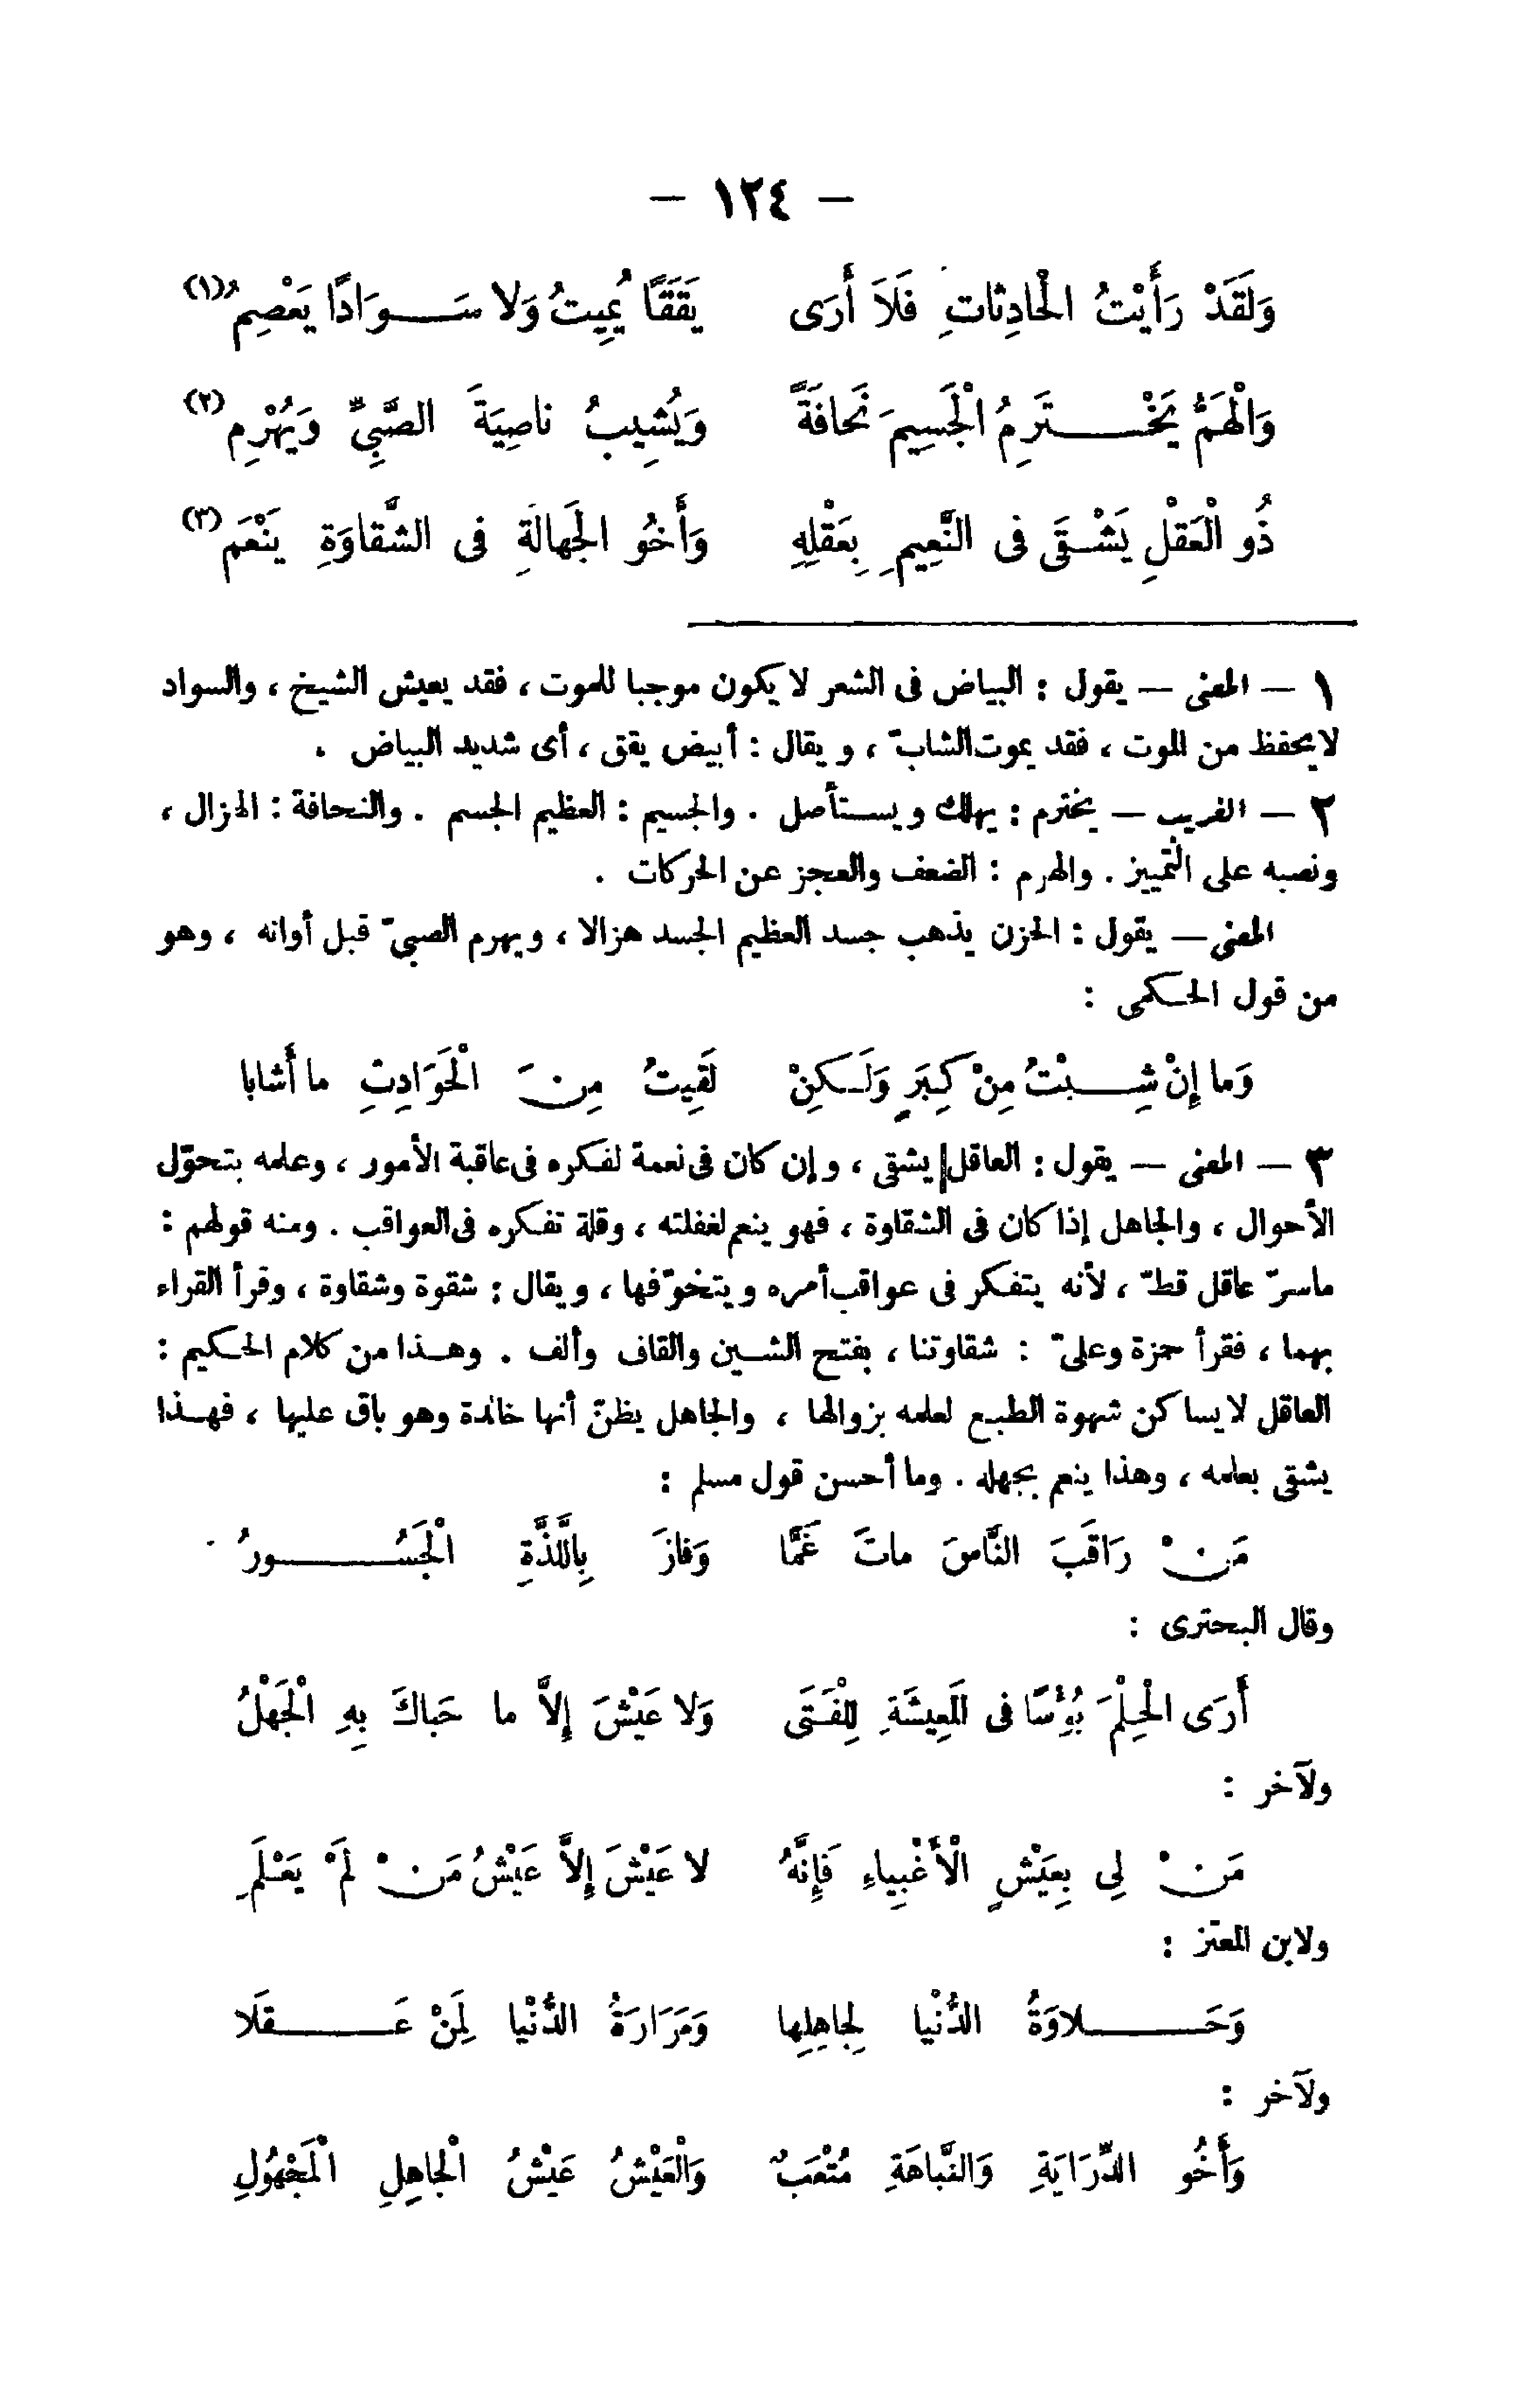 — ١٢٤ —
وَلَقَدْ رَأَيْتُ الْحَادِثاتِ فَلاَ أَرَى يَقَقًا يُمِيتُ وَلا سَـوَادًا يَعْصِمُ (١)
وَالْهَمُّ يَخْـتَرِمُ الْجَسِيمَ نَحَافَةً وَيُشِيبُ ناصِيَةَ الصَّبِيِّ وَيُهْرِمِ (٢)
ذُو الْعَقْلِ يَشْـقَى فى النَّعِيمِ بِعَقْلِهِ وَأَخُو الْجَهالَةِ فى الشَّقاوَةِ يَنْعَمُ (٣)
١ — المعنى — يقول : البياض فى الشعر لا يكون موجبا للموت ، فقد يعيش الشيخ ، والسواد
لا يحفظ من الموت ، فقد يموت الشابّ ، ويقال : أبيض يقق ، أى شديد البياض .
٢ — الغريب — يخترم : يهلك ويستأصل . والجسيم : العظيم الجسم . والنحافة : الهزال ،
ونصبه على التمييز . والهرم : الضعف والعجز عن الحركات .
المعنى — يقول : الحزن يذهب جسد العظيم الجسد هزالا ، ويهرم الصبىّ قبل أوانه ، وهو
من قول الحكمى :
وَما إِنْ شِـبْتُ مِنْ كِبَرٍ وَلَـكِنْ لَقِيتُ مِنَ الْحَوَادِثِ ما أَشابا
٣ — المعنى — يقول : العاقل يشقى ، وإن كان فى نعمة لفكره فى عاقبة الأمور ، وعلمه بتحوّل
الأحوال ، والجاهل إذا كان فى الشقاوة ، فهو ينعم لغفلته ، وقلة تفكره فى العواقب . ومنه قولهم :
ماسرّ عاقل قطّ ، لأنه يتفكر فى عواقب أمره ويتخوّفها ، ويقال : شقوة وشقاوة ، وقرأ القراء
بهما ، فقرأ حمزة وعلىّ : شقاوتنا ، بفتح الشـين والقاف وألف . وهـذا من كلام الحـكيم :
العاقل لا يساكن شهوة الطبـع لعلمه بزوالها ، والجاهل يظنّ أنها خالدة وهو باق عليها ، فهـذا
يشقى بعلمه ، وهذا ينعم بجهله . وما أحسن قول مسلم :
مَنْ رَاقَبَ النَّاسَ ماتَ غَمًّا وَفازَ بِاللَّذَّةِ الْجَسُـورُ
وقال البحترى :
أَرَى الْحِلْمَ بُؤْسًا فى المَعِيشَةِ لِلْفَـتَى وَلا عَيْشَ إِلاَّ ما حَباكَ بِهِ الْجَهْلُ
ولآخر :
مَنْ لِى بِعَيْشٍ الْأَغْبِياءِ فَإِنَّهُ لا عَيْشَ إِلاَّ عَيْشُ مَنْ لَمْ يَعْـلَمِ
ولابن المعتز :
وَحَـلاوَةُ الدُّنْيا لِجاهِلِها وَمَرَارَةُ الدُّنْيا لِمَنْ عَـقَلا
ولآخر :
وَأَخُو الدِّرَايَةِ وَالنَّباهَةِ مُتْعَبٌ وَالْعَيْشُ عَيْشُ الْجاهِلِ الْمَجْهُولِ